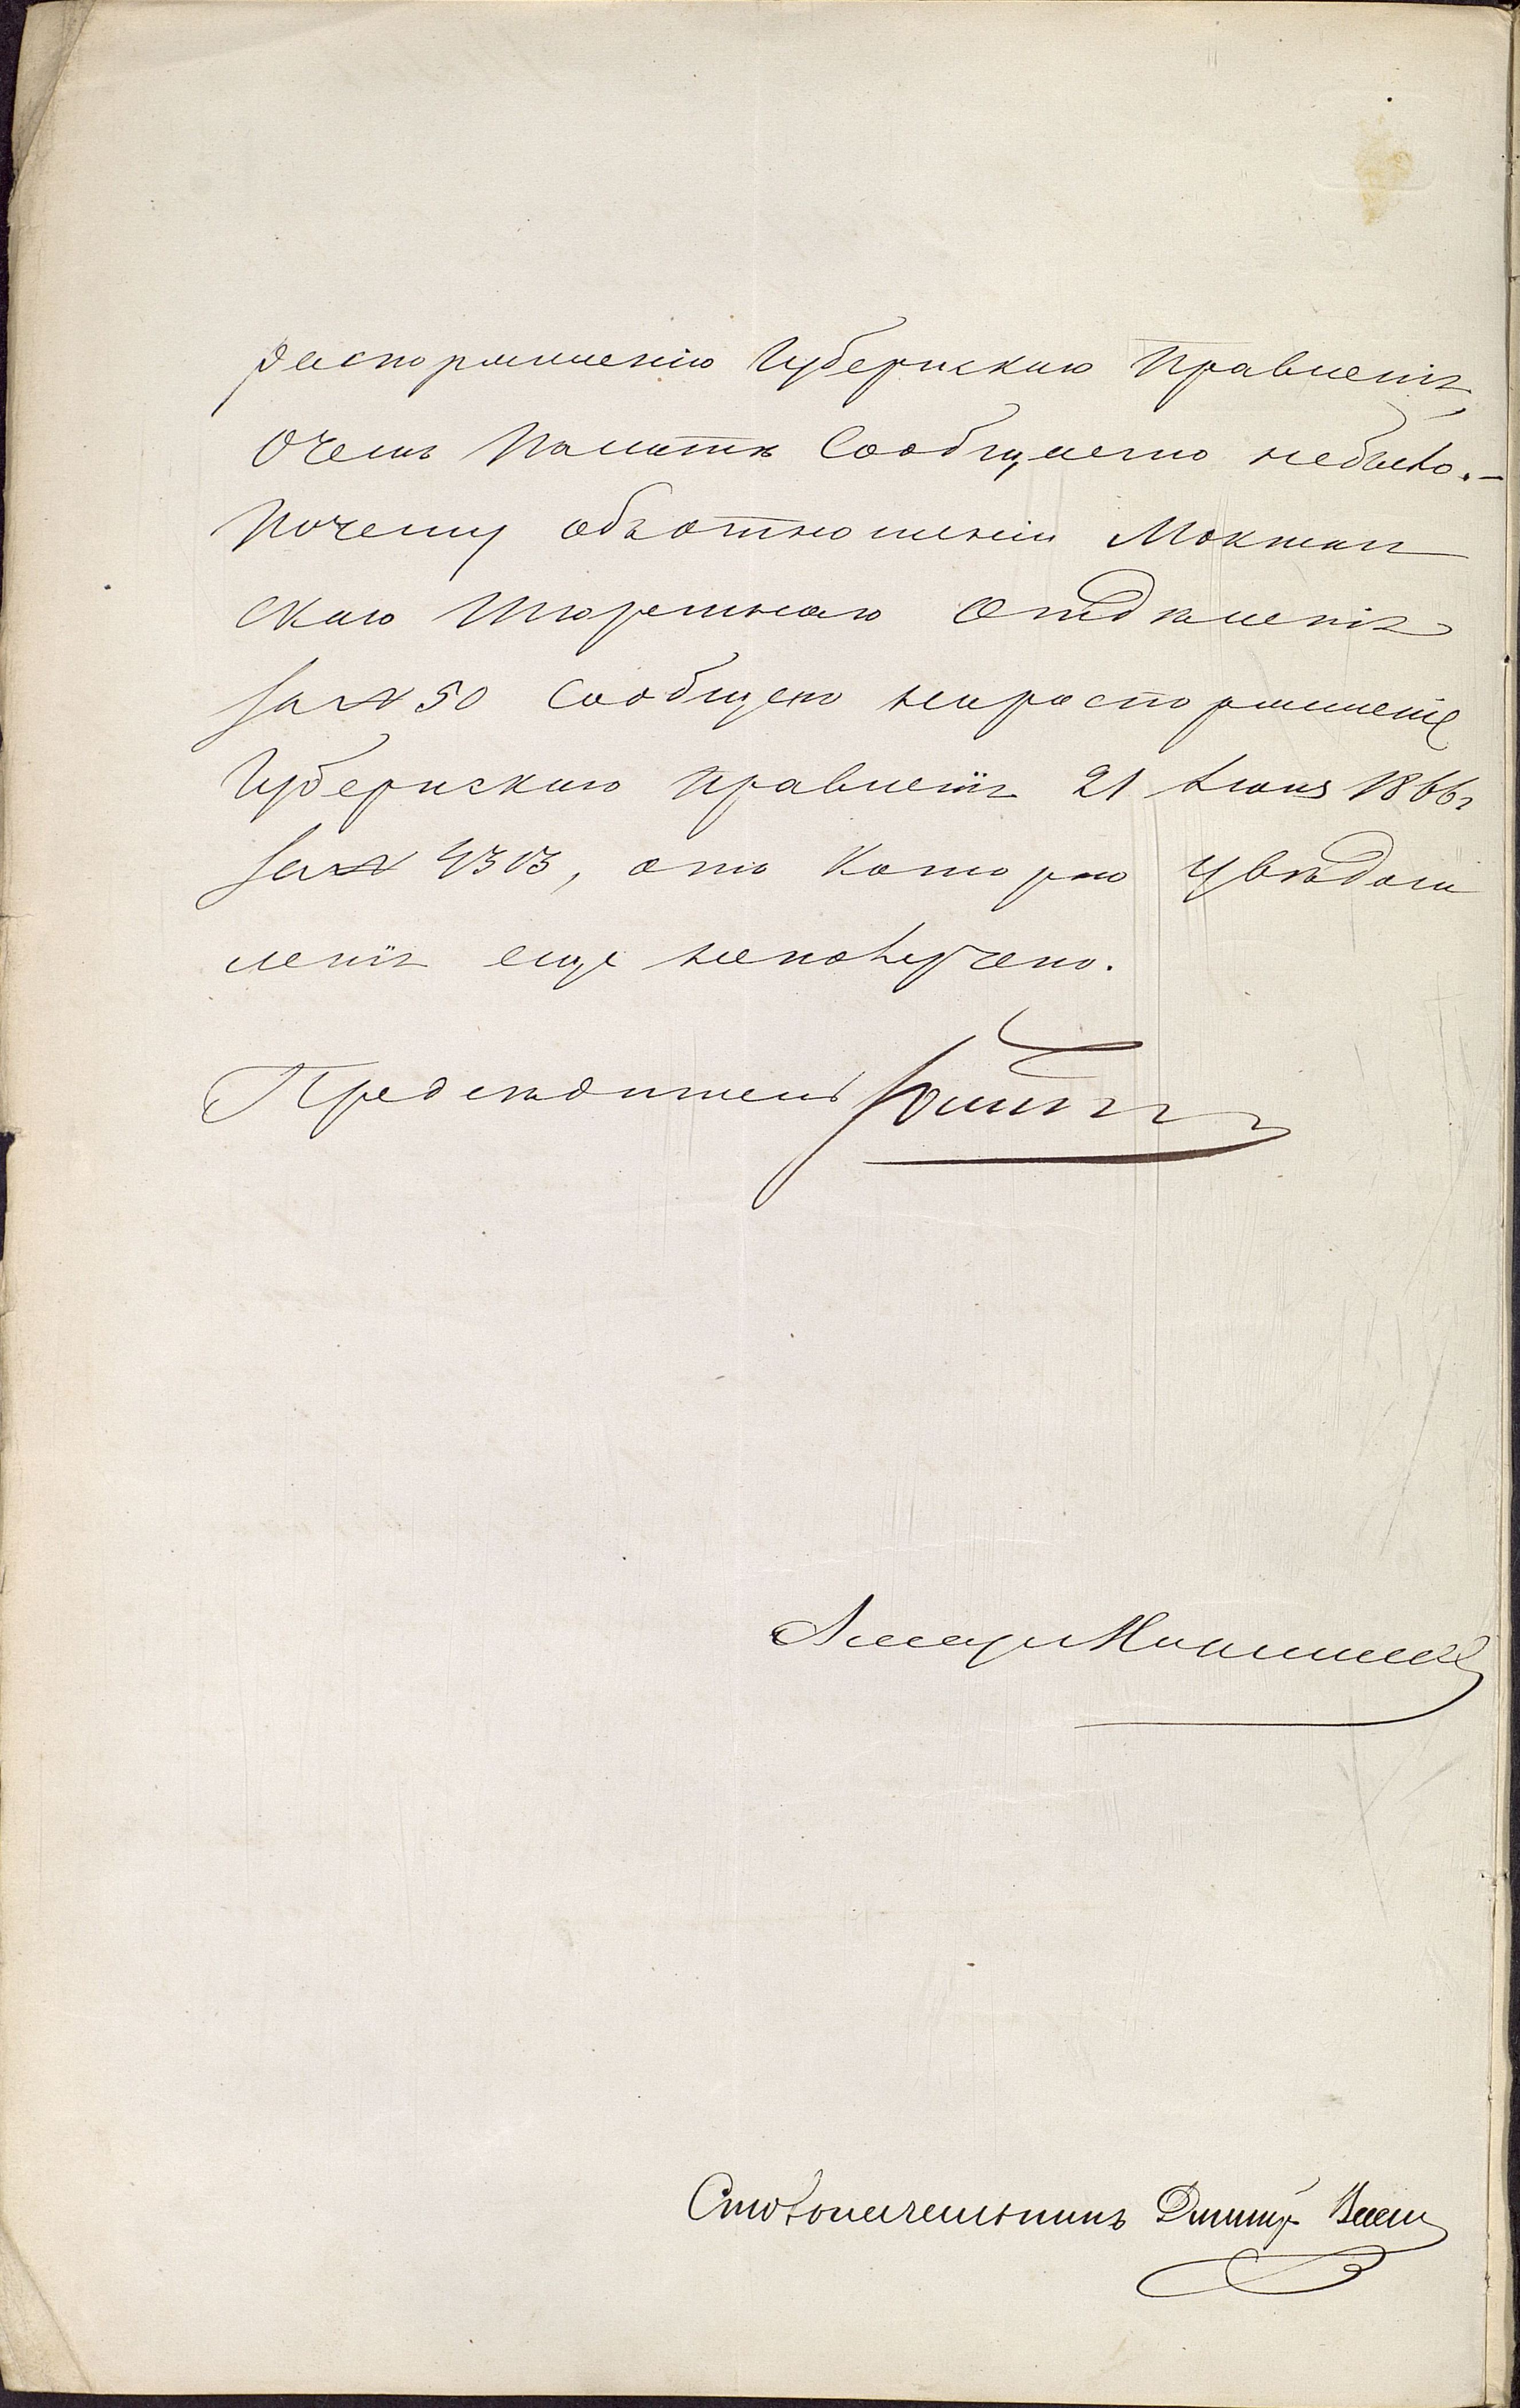 распоряженію Губернскаго Правленія
Очемъ Палатѣ Сообщаемо небыло.—
Почему объотношеніи Мокшан
скаго Тюремнаго Отдѣленія
за № 50 Сообщено нараспоряженіе
Губернскаго Правленія 21 Іюня 1866г
за № 4303, отъ Котораго Увѣдом
ленія еще неполучено.
Предсѣдатель
Столоначальникъ Дмитр